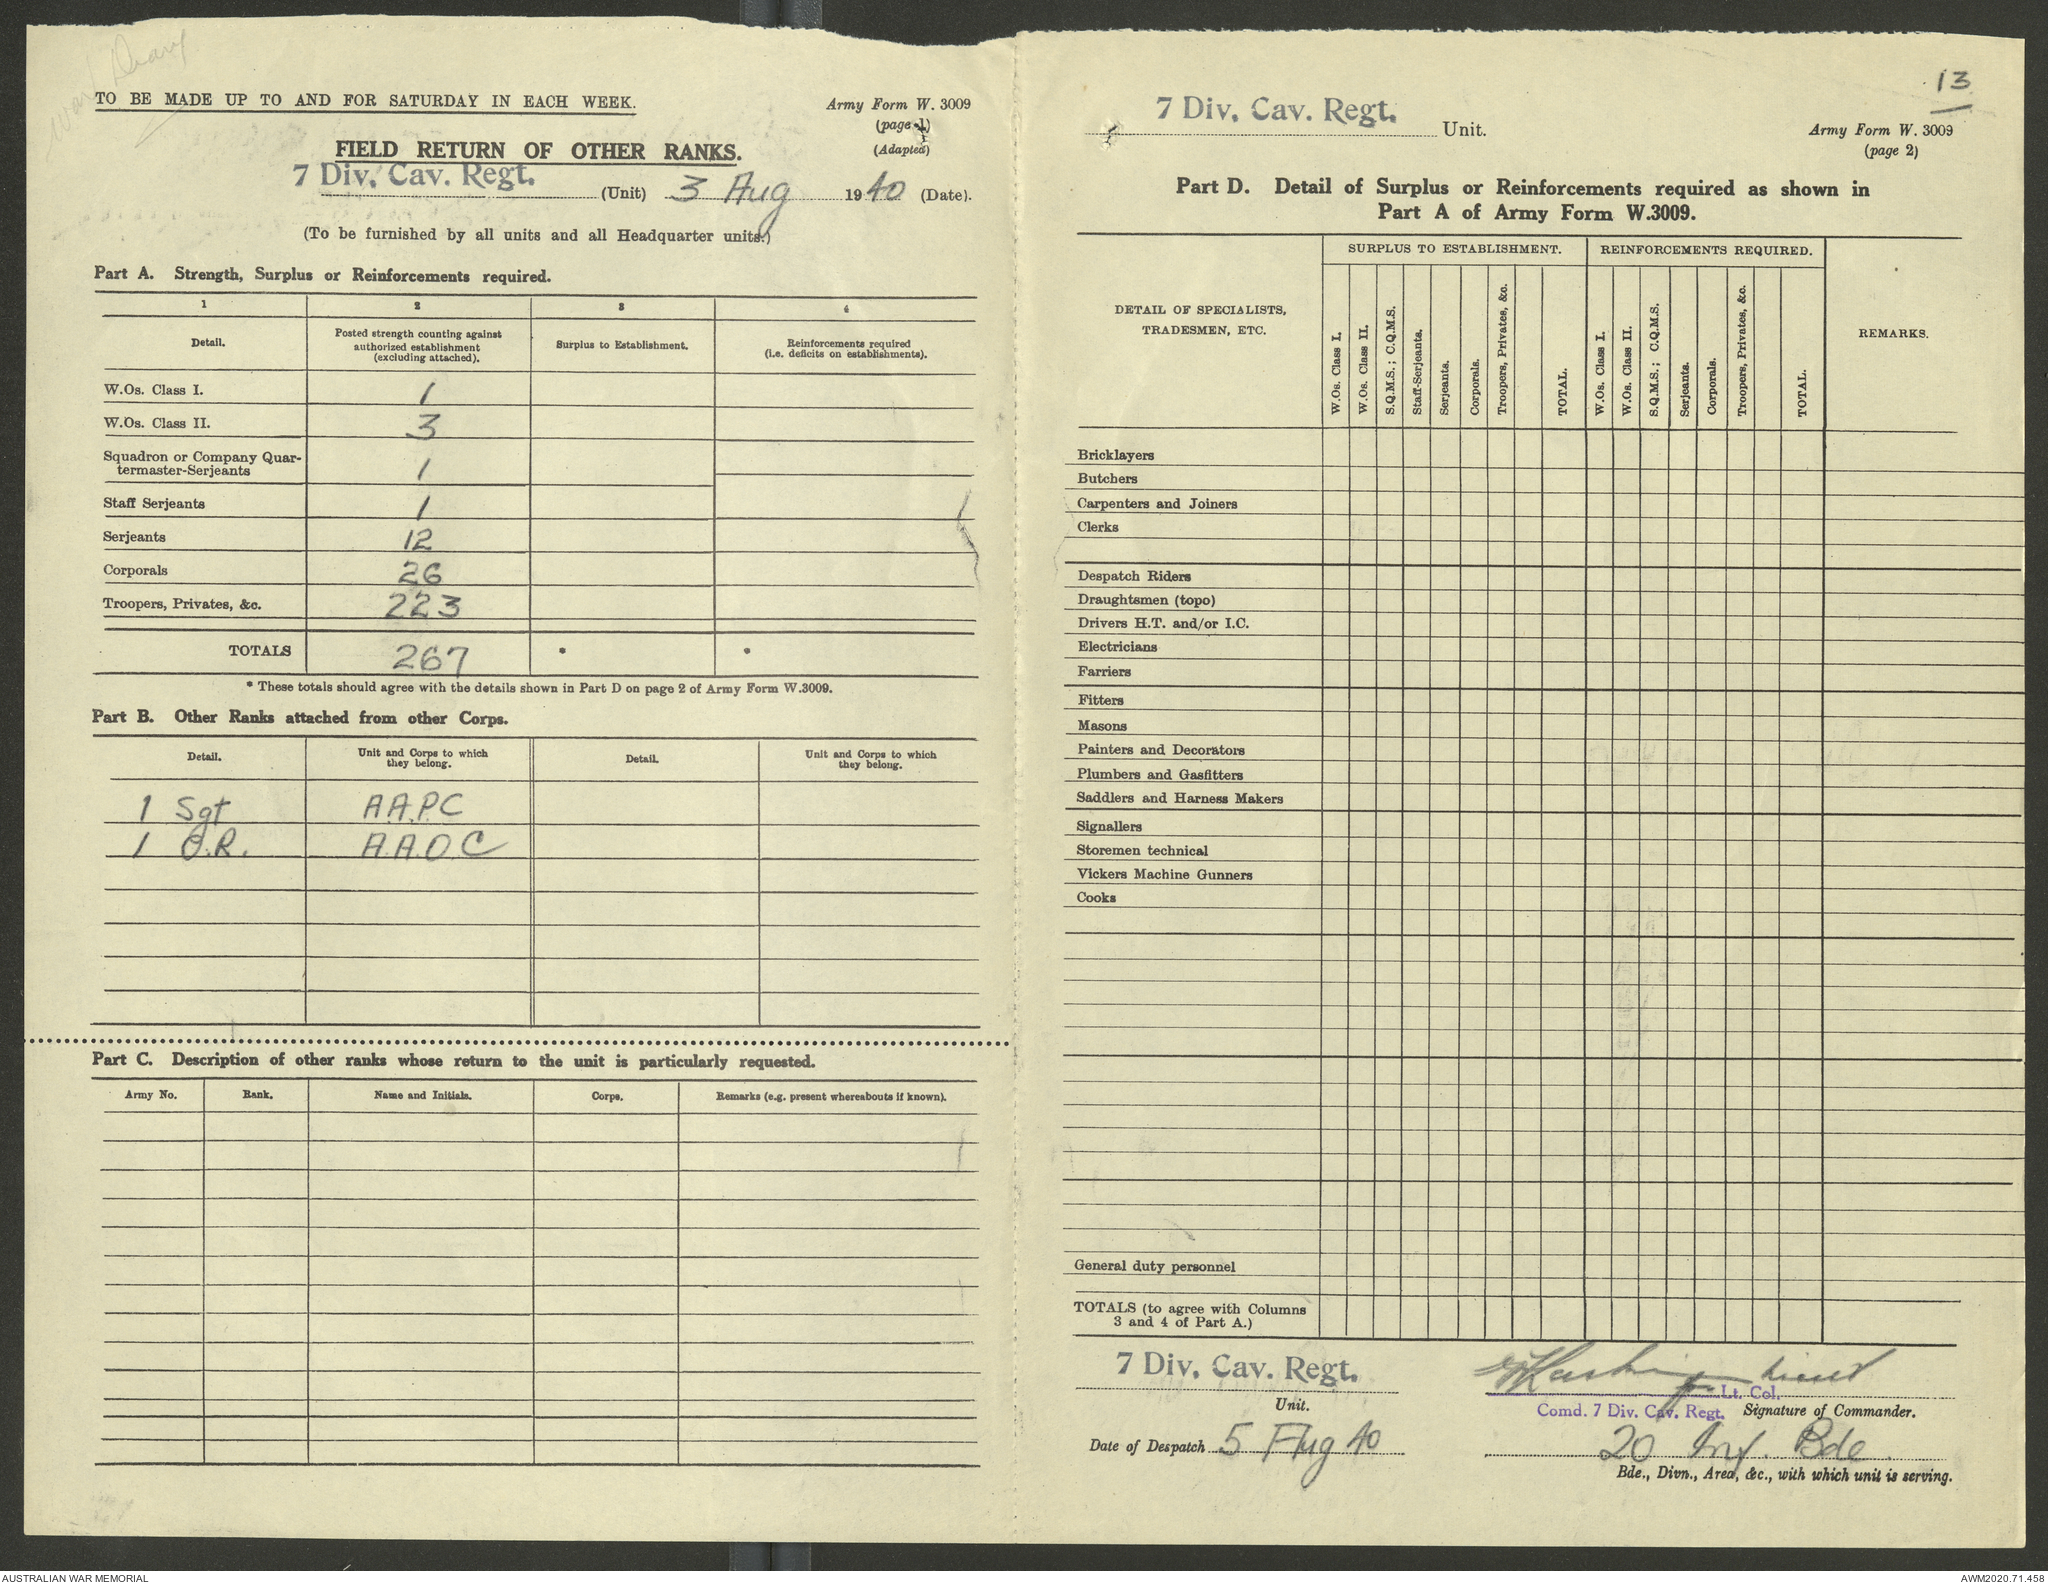 War Diary
TO BE MADE UP TO AND FOR SATURDAY IN EACH WEEK.
Army Form W. 3009
(page 1)
(Adapted)
FIELD RETURN OF OTHER RANKS.
7 Div. Cav. Regt. (Unit) 3 Aug 1940 (Date).
(To be furnished by all units and all Headquarter units.)
Part A. Strength, Surplus or Reinforcements required.
1 2 3 4
Detail. Posted strength counting against authorized establishment (excluding attached). Surplus to Establishment. Reinforcements required (i.e. deficits on establishments).
W.Os. Class I. 1
W.Os. Class II. 3
Squadron or Company Quar-
termaster-Serjeants 1
Staff Serjeants 1
Serjeants 12
Corporals 26
Troopers, Privates, &c. 223
TOTALS 267 * *
* These totals should agree with the details shown in Part D on page 2 of Army Form W.3009.
Part B. Other Ranks attached from other Corps.
Detail. Unit and Corps to which they belong. Detail. Unit and Corps to which they belong.
1 Sgt A.A.P.C
1 O.R. A.A.O.C
Part C. Description of other ranks whose return to the unit is particularly requested.
Army No. Rank. Name and Initials. Corps. Remarks (e.g. present whereabouts if known).
13
7 Div. Cav. Regt. Unit.
Army Form W. 3009
(page 2)
Part D. Detail of Surplus or Reinforcements required as shown in
Part A of Army Form W.3009.
DETAIL OF SPECIALISTS, TRADESMEN, ETC. SURPLUS TO ESTABLISHMENT. REINFORCEMENTS REQUIRED. REMARKS.
W.Os. Class I. W.Os. Class II. S.Q.M.S.; C.Q.M.S. Staff-Serjeants. Serjeants. Corporals. Troopers, Privates, &c. TOTAL. W.Os. Class I. W.Os. Class II. S.Q.M.S.; C.Q.M.S. Serjeants. Corporals. Troopers, Privates, &c. TOTAL.
Bricklayers
Butchers
Carpenters and Joiners
Clerks
Despatch Riders
Draughtsmen (topo)
Drivers H.T. and/or I.C.
Electricians
Farriers
Fitters
Masons
Painters and Decorators
Plumbers and Gasfitters
Saddlers and Harness Makers
Signallers
Storemen technical
Vickers Machine Gunners
Cooks
General duty personnel
TOTALS (to agree with Columns
3 and 4 of Part A.)
7 Div. Cav. Regt.
Unit.
Date of Despatch 5 Aug 40
Lieut
Lt. Col.
Comd. 7 Div. Cav. Regt. Signature of Commander.
20 Inf. Bde.
Bde., Divn., Area, &c., with which unit is serving.
AUSTRALIAN WAR MEMORIAL
AWM2020.71.458